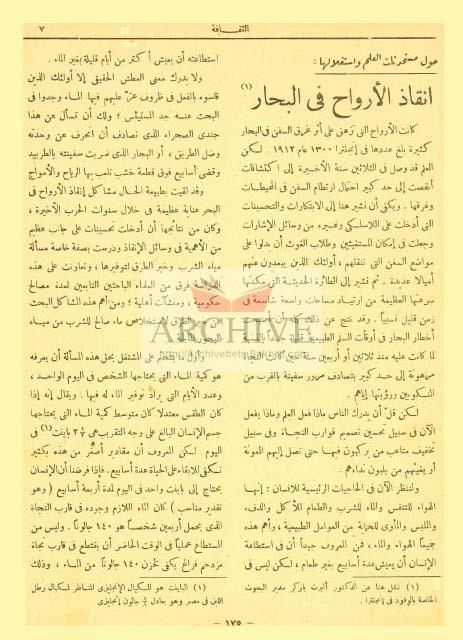 الثقافة
٧
حول مستحدثات العلم واستغلالها :
انقاذ الأرواح فى البحار (١)
كانت الأرواح التى تزهق على أثر غرق السفن فى البحار
كثيرة بلغ عددها فى إنجلترا ١٣٠٠ عام ١٩١٢ . لكن
العلم قد وصل فى الثلاثين سنة الأخيرة إلى اكتشافات
أنقصت إلى حد كبير احتمال ارتطام السفن فى المحيطات
وغرقها . ويكفى أن نشير هنا إلى الابتكارات والتحسينات
التى أدخلت على اللاسلكى وغيره من وسائل الإشارات
وجعلت فى إمكان المستغيثين وطلاب الغوث أن يدلوا على
مواضع السفن التى تنقلهم ، أولئك الذين يبعدون عنهم
أميالا عديدة . ثم نشير إلى الطائرة الحديثة التى مكنتها
سرعتها العظيمة من ارتياد مساحات واسعة شاسعة فى
زمن قليل نسبياً . وقد نتج عن ذلك كله أن أصبحت
أخطار البحار فى أوقات السلم الطبيعية قليلة جداً بالنسبة
لما كانت عليه منذ ثلاثين أو أربعين سنة حين كانت النجاة
مرهونة إلى حد كبير بتصادف مرور سفينة بالقرب من
المنكوبين ورؤيتها إياهم .
لكن قل أن يدرك الناس ماذا فعل العلم وماذا يفعل
الآن فى سبيل تحسين تصميم قوارب النجاة وفى سبيل
تخفيف متاعب من يركبون فيها حتى تصل إليهم المعونة
أو يغيثهم من يلبون نداءهم .
ولننظر الآن فى الحاجيات الرئيسية للانسان : إنها
الهواء للتنفس والماء للشرب والطعام للأكل والدفء
والملبس والمأوى للحماية من العوامل الطبيعية ، وأهم هذه
جميعاً الهواء والماء ، فمن المعروف جيداً أن فى استطاعة
الإنسان أن يعيش عدة أسابيع بغير طعام ، لكن ليس فى
(١) ننقل هنا عن الدكتور ألبرت باركر مدير البحوث
الخاصة بالوقود فى إنجلترا .
استطاعته أن يعيش أكثر من أيام قليلة بغير الماء .
ولا يدرك معنى العطش الحقيقى إلا أولئك الذين
قاسوه بالفعل فى ظروف عز عليهم فيها الماء وجدوا فى
البحث عنه جد المستيئس ؛ ولك أن تسأل عن هذا
جندى الصحراء الذى تصادف أن انحرف عن وحدته
وضل الطريق ، أو البحار الذى ضربت سفينته بالطربيد
وقضى أسابيع فوق قطعة خشب تلعب بها الرياح والأمواج
وقد لقيت بطبيعة الحال مشاكل إنقاذ الأرواح فى
البحر عناية عظيمة فى خلال سنوات الحرب الأخيرة ،
وكان من نتائجها أن أدخلت تحسينات على جانب عظيم
من الأهمية فى وسائل الإنقاذ ودرست بصفة خاصة مسألة
مياه الشرب وخير الطرق لتوفيرها ، وتعاونت على هذه
الدراسة فرق من العلماء الباحثين التابعين لعدة مصالح
حكومية ، ومنشآت أهلية ؛ ومن أهم هذه المشاكل البحث
الطرق لاستخلاص ماء صالح للشرب من مياه
البحر الملحة .
وأول ما يتعين على المشتغل بحل هذه المسألة أن يعرفه
هو كمية الماء التى يحتاجها الشخص فى اليوم الواحد ،
وعدد الأيام التى يراد توفير الماء له فيها . ويقال إنه إذا
كان الطقس معتدلا كان متوسط كمية الماء التى يحتاجها
جسم الإنسان البالغ على وجه التقريب هى ٣½ باينت (١) فى
اليوم . لكن المعروف أن مقادير أصغر من هذه بكثير
تكفى للابقاء على الحياة عدة أسابيع . فإذا فرضنا أن الإنسان
يحتاج إلى باينت واحد فى اليوم لمدة أربعة أسابيع ( وهو
تقدير مناسب ) كان الماء اللازم وجوده فى قارب النجاة
الذى يحمل أربعين شخصاً هو ١٤٠ جالوناً . وليس من
المستطاع عملياً فى الوقت الحاضر أن يقتطع فى قارب نجاة
مزدحم فراغ يكفى لخزن ١٤٠ جالوناً من الماء ، وذلك
(١) الباينت هو المكيال الإنجليزى المناظر لمكيال رطل
اللبن فى مصر وهو يعادل ⅛ جالون إنجليزى
— ١٧٥ —
ARCHIVE